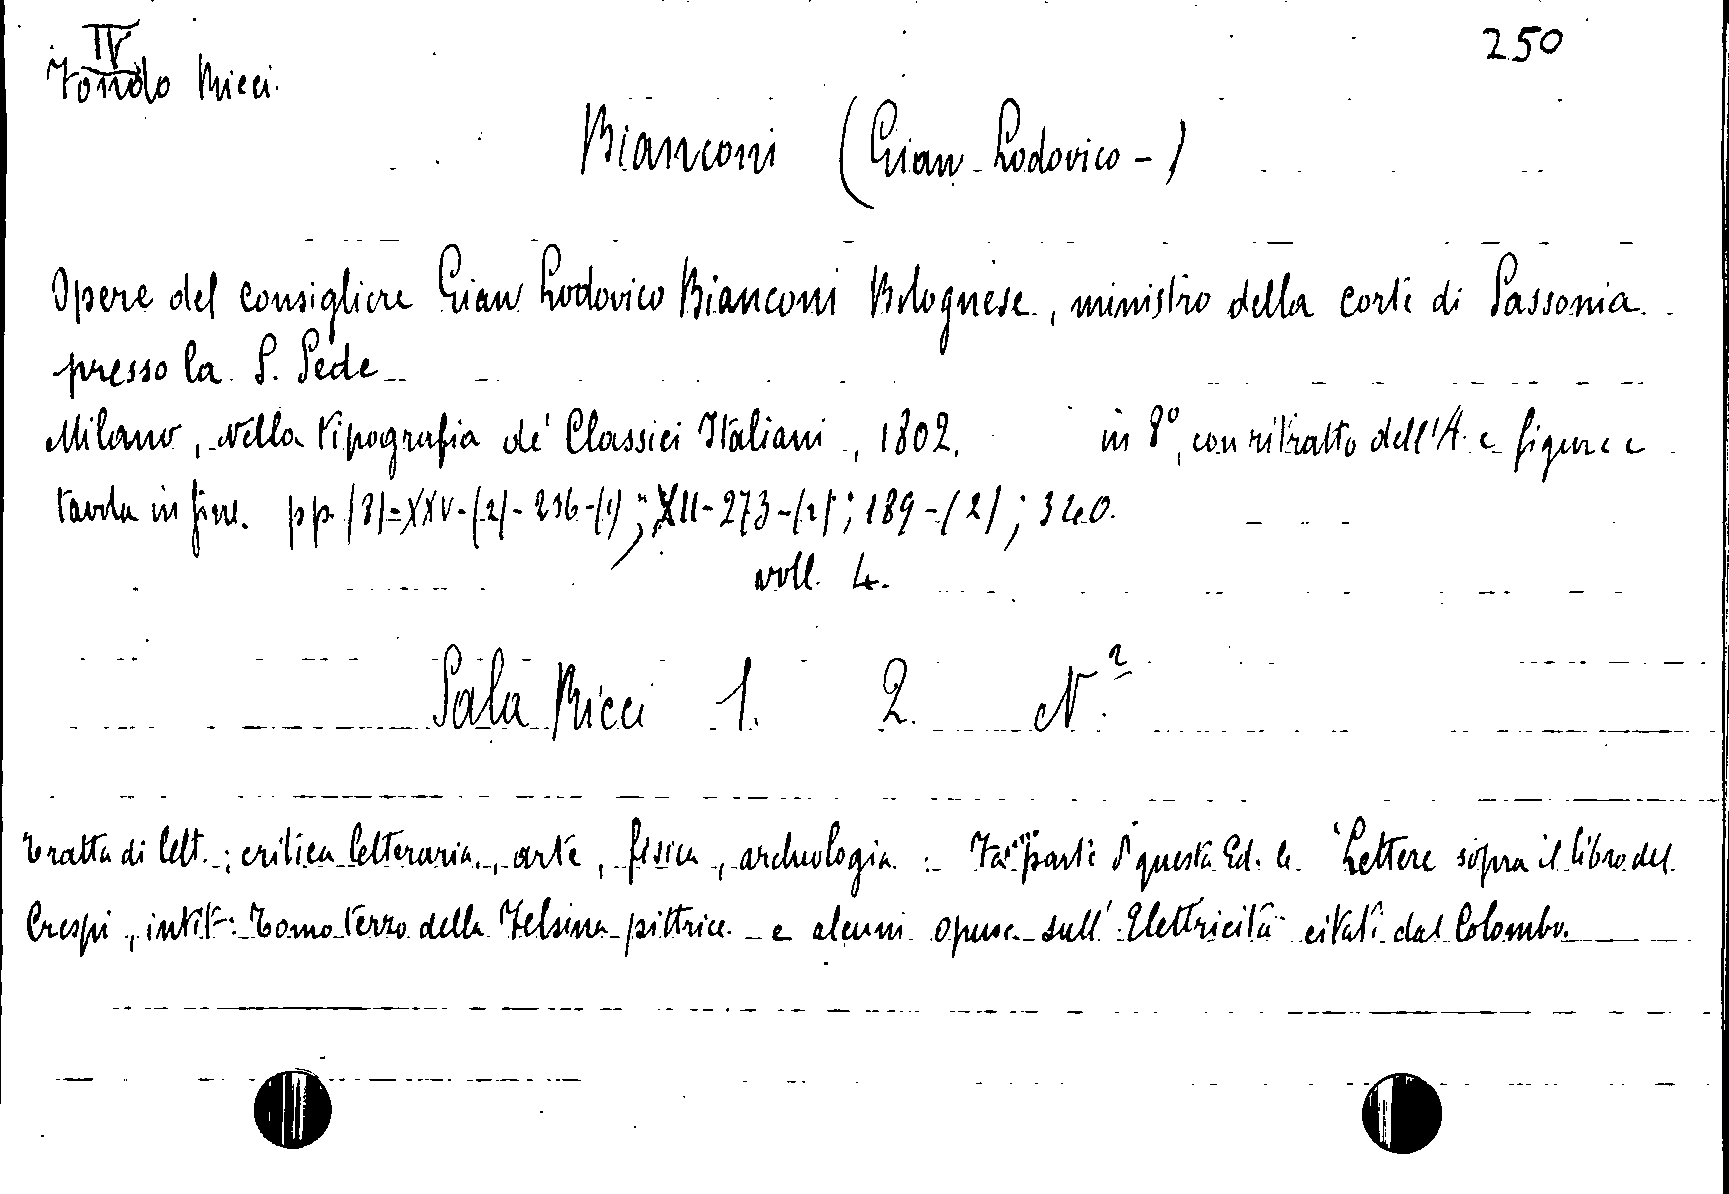 IV
250
Fondo Ricci.
Bianconi (Gian Lodovico -)
Opere del consigliere Gian Lodovico Bianconi Bolognese, ministro della corte di Sassonia
presso la S. Sede
Milano, nella tipografia de' Classici Italiani, 1802. in 8°, con ritratto dell'A. e figure e
tavola in fine. pp. (8)=XXV-(2)-236-(1); XII-273-(1); 189-(2); 340.
voll. 4.
Sala Ricci 1. 2. N. 2
Tratta di lett.; critica letteraria, arte, fisica, archeologia: Fa parte di questa Ed. le "Lettere sopra il libro del
Crespi, intit: Tomo terzo della Felsina pittrice e alcuni opusc. sull' Elettricità citati dal Colombo.